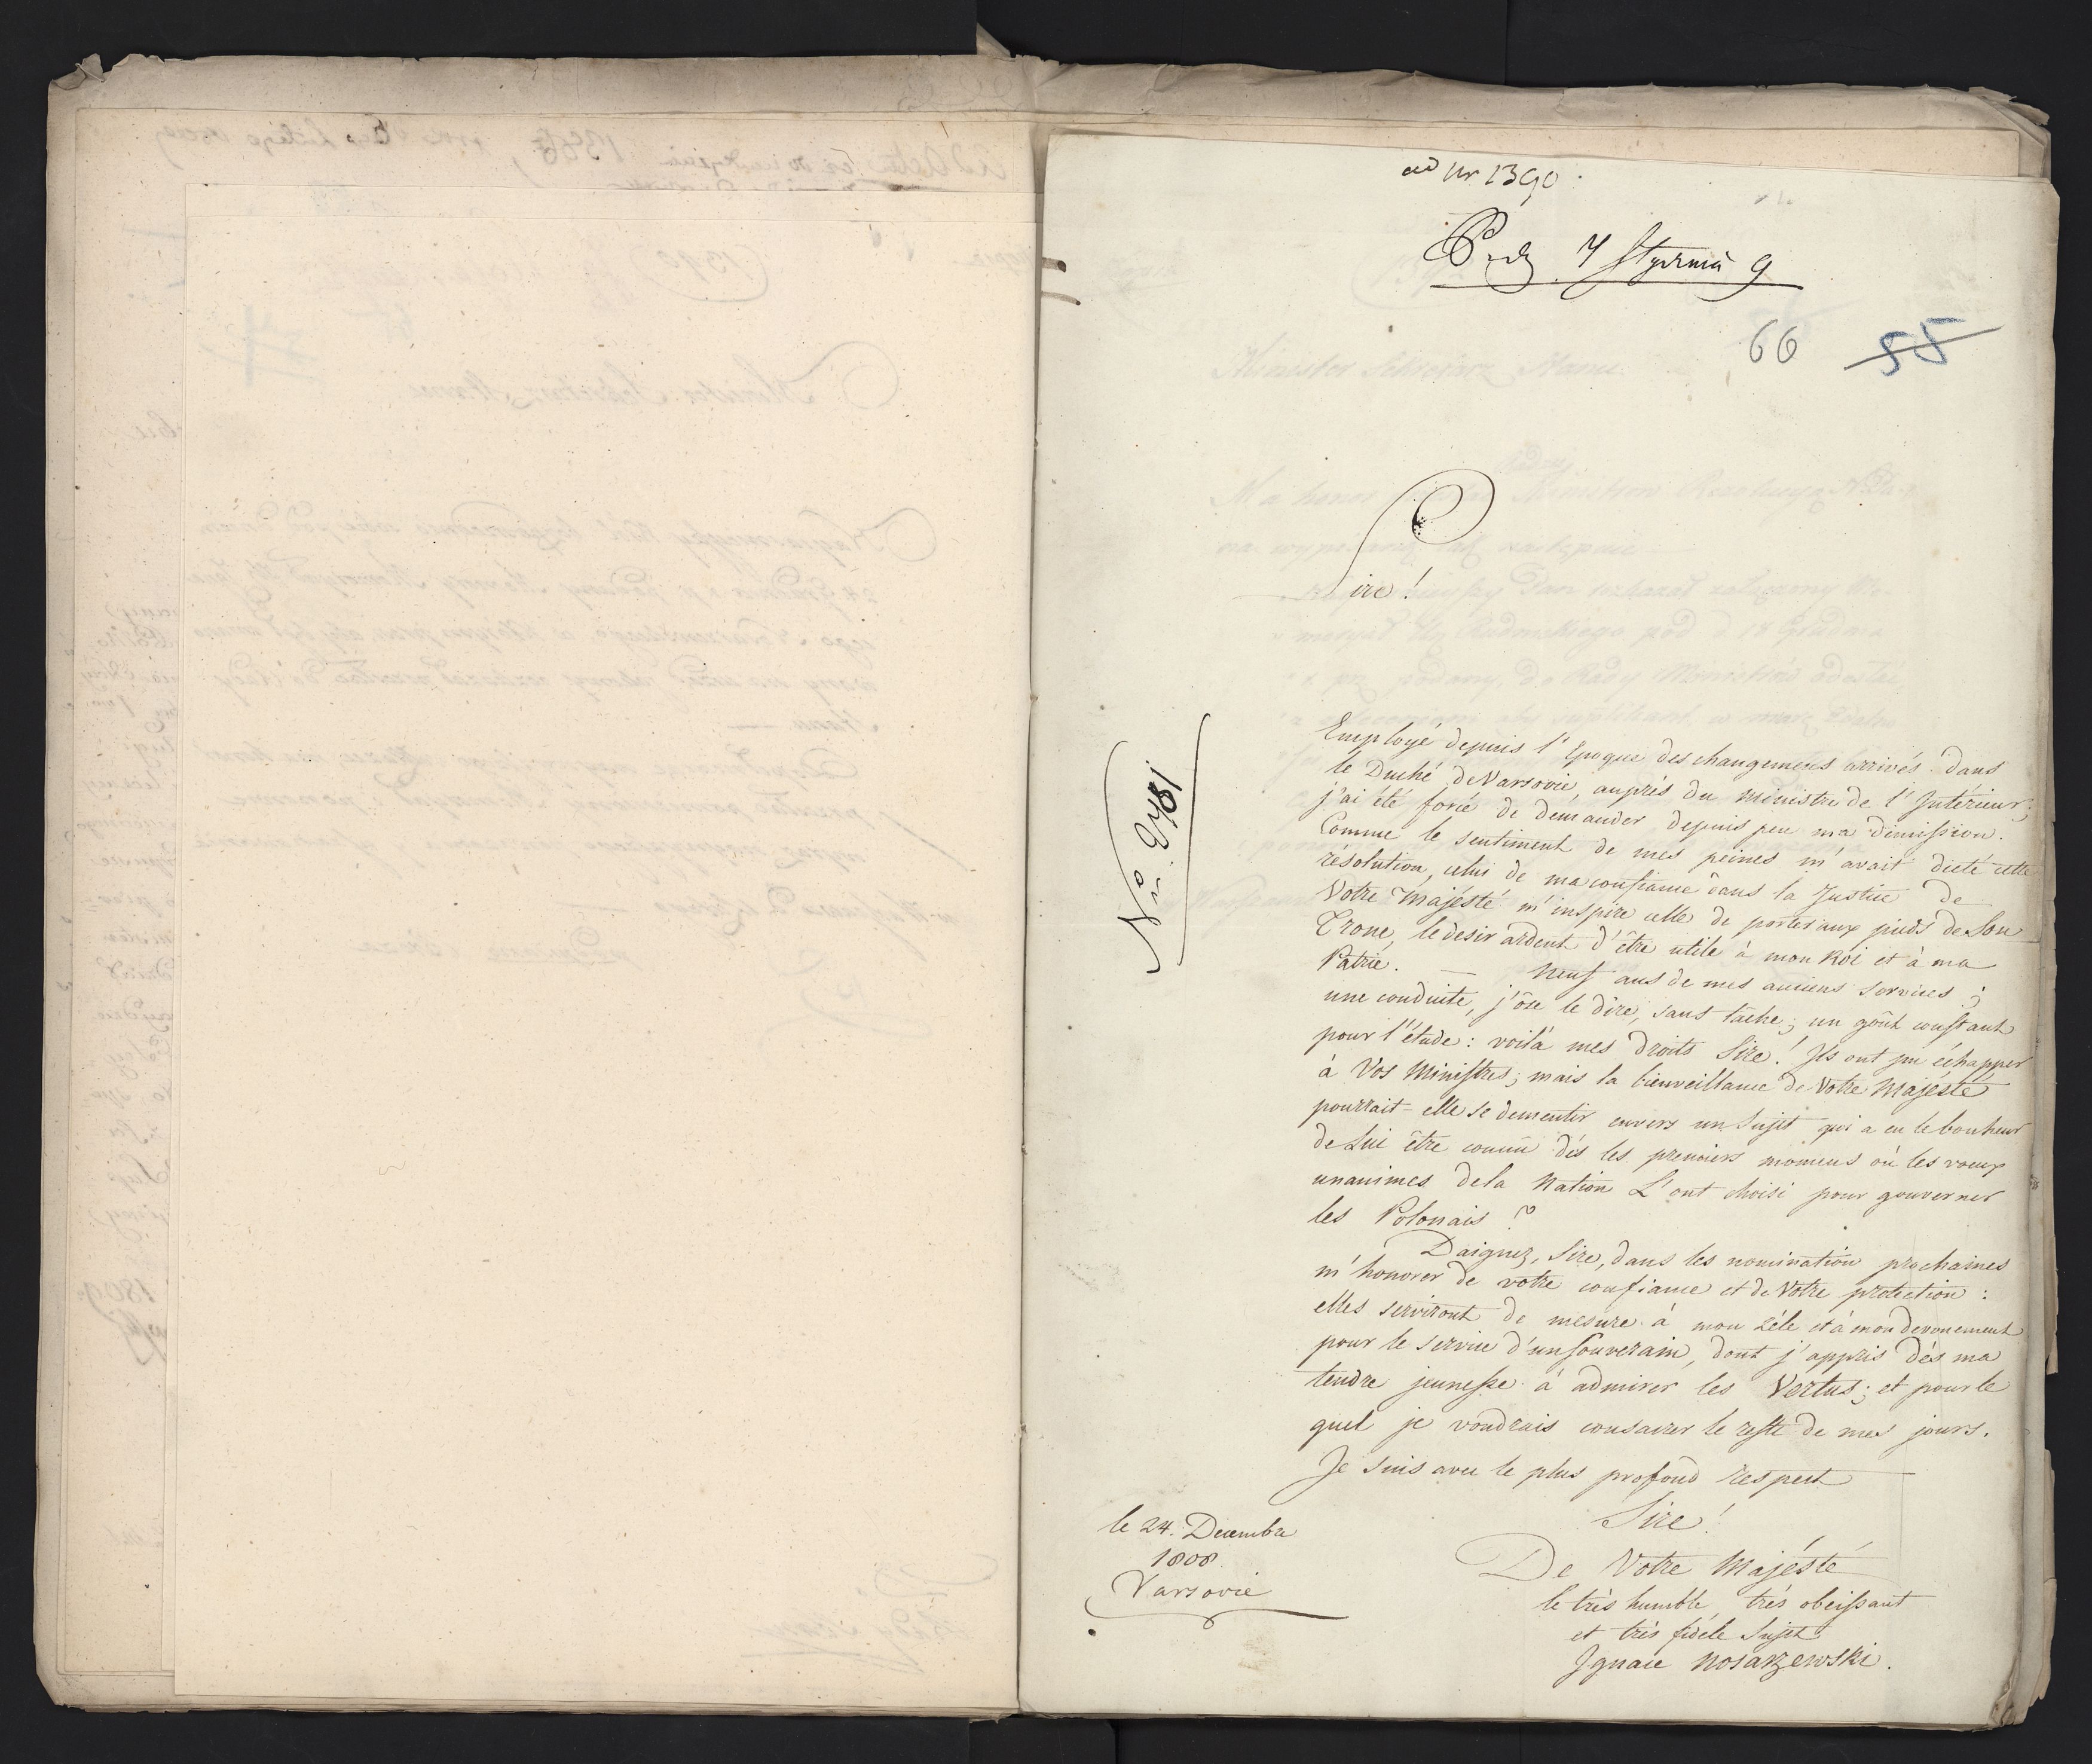 ad Nr 1390
7 Stycznia 9
66 55
Sire!
No. 2781
Employé depuis l'Epoque des changemens arrivés dans
le Duché de Varsovie, auprès du Ministre de l'Intérieur;
j'ai été forcé de demander depuis peu ma dimission.
Comme le sentiment de mes peines m'avait dicté cette
résolution, celui de ma confiance dans la Justice de
Votre Majésté m'inspire celle de porter aux pieds de Son
Trone, le desir ardent d'être utile à mon Roi et à ma
Patrie. — Neuf ans de mes anciens services;
une conduite, j'ôse le dire, sans tâche; un goût constant
pour l'étude: voilà mes droits Sire! Ils ont pu échapper
à Vos Ministres; mais la bienveillance de Votre Majésté
pourrait-elle se dementir envers un Sujet qui a eu le bonheur
de Lui être connu dès les premiers momens où les voeux
unanimes de la Nation L'ont choisi pour gouverner
les Polonais?
Daignez, Sire, dans les nomination prochaines
m'honorer de votre confiance et de Votre protection:
elles serviront de mesure à mon zéle et à mon devouement
pour le service d'un Souverain, dont j'appris dès ma
tendre jeunesse à admirer les Vertus; et pour le
quel je voudrais consacrer le reste de mes jours.
Je suis avec le plus profond respect
Sire!
De Votre Majésté
le très humble, très obeissant
et très fidéle Sujet
Ignace Nosarzewski.
le 24. Decembre
1808.
Varsovie